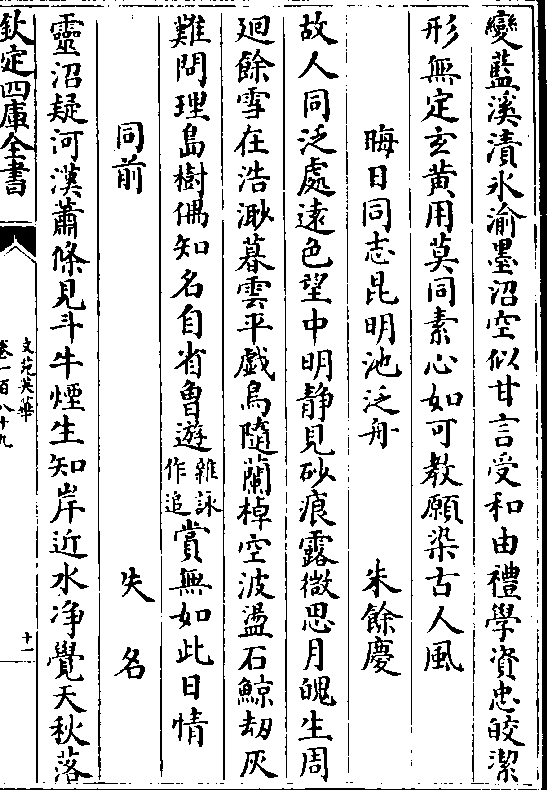 變藍溪漬氷渝墨沼空似甘言受和由禮學資忠皎潔
形無定玄黄用莫同素心如可教願染古人風
晦日同志昆明池泛舟　朱餘慶
故人同泛處遠色望中明静見砂痕露微思月魄生周
廻餘雪在浩渺暮雲平戯鳥隨蘭棹空波盪石鯨刼灰
難問理島樹偶知名自省曾遊雜詠作追賞無如此日情
同前　失名
靈沼疑河漢蕭條見斗牛煙生知岸近水净覺天秋落
欽定四庫全書
文苑英華
卷一百八十九
十一